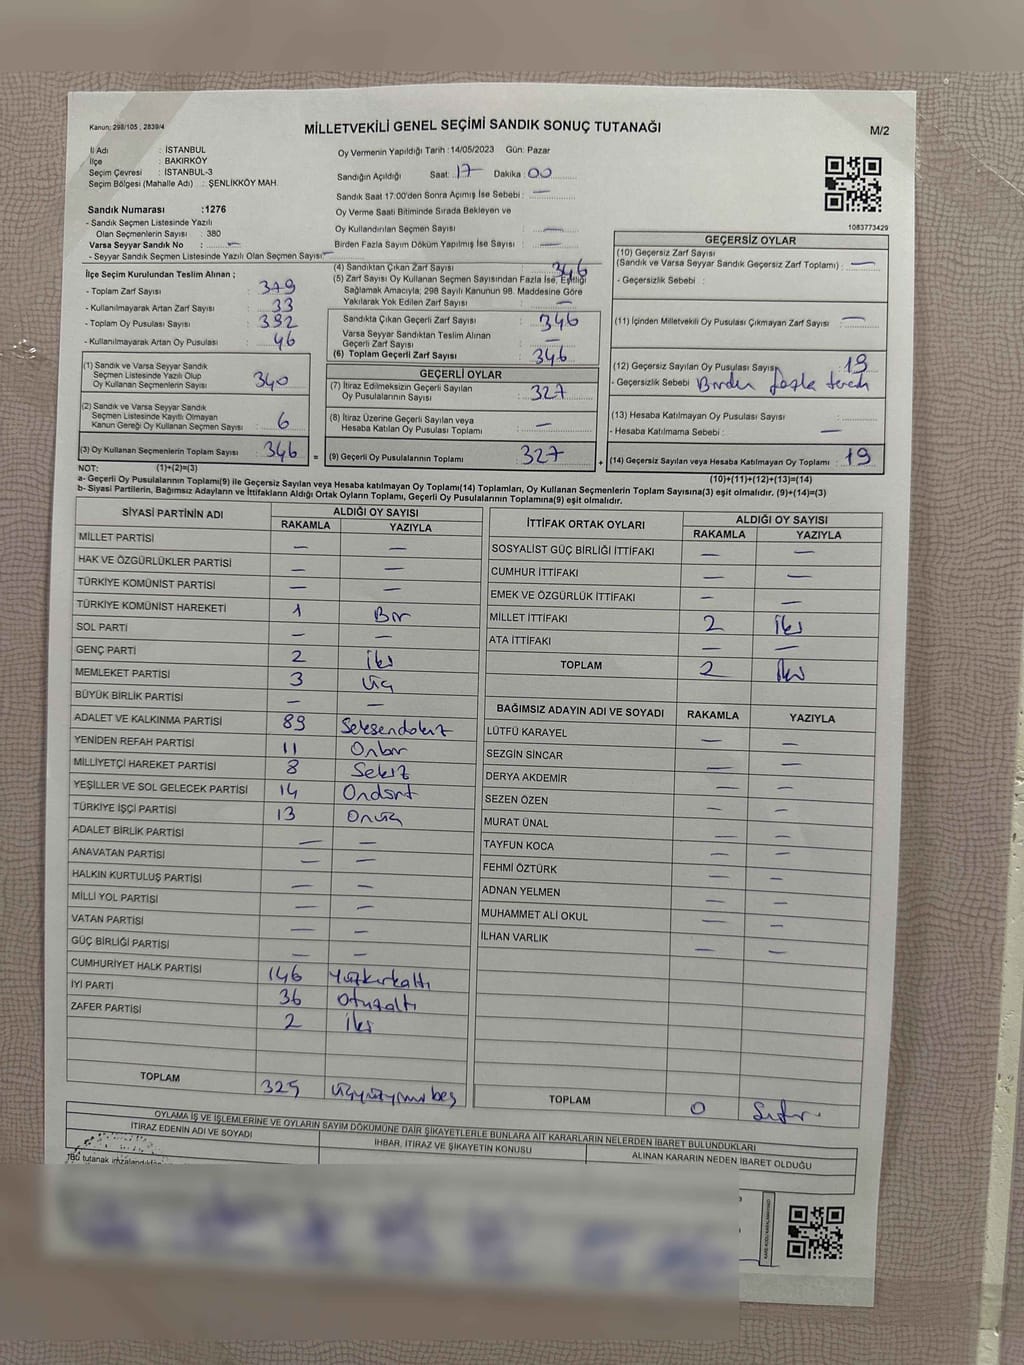 Kanun; 298/105 , 2839/4
MİLLETVEKİLİ GENEL SEÇİMİ SANDIK SONUÇ TUTANAĞI
M/2
İl Adı : İSTANBUL
İlçe : BAKIRKÖY
Seçim Çevresi : İSTANBUL-3
Seçim Bölgesi (Mahalle Adı) : ŞENLİKKÖY MAH.
Sandık Numarası :1276
- Sandık Seçmen Listesinde Yazılı
Olan Seçmenlerin Sayısı : 380
Varsa Seyyar Sandık No : —
- Seyyar Sandık Seçmen Listesinde Yazılı Olan Seçmen Sayısı: —
Oy Vermenin Yapıldığı Tarih :14/05/2023 Gün: Pazar
Sandığın Açıldığı Saat: 17 Dakika: 00
Sandık Saat 17.00'den Sonra Açımış İse Sebebi : —
Oy Verme Saati Bitiminde Sırada Bekleyen ve
Oy Kullandırılan Seçmen Sayısı : —
Birden Fazla Sayım Döküm Yapılmış İse Sayısı : —
1083773429
İlçe Seçim Kurulundan Teslim Alınan ;
- Toplam Zarf Sayısı : 379
- Kullanılmayarak Artan Zarf Sayısı : 33
- Toplam Oy Pusulası Sayısı : 392
- Kullanılmayarak Artan Oy Pusulası : 46
(1) Sandık ve Varsa Seyyar Sandık
Seçmen Listesinde Yazılı Olup
Oy Kullanan Seçmenlerin Sayısı : 340
(2) Sandık ve Varsa Seyyar Sandık
Seçmen Listesinde Kayıtlı Olmayan
Kanun Gereği Oy Kullanan Seçmen Sayısı : 6
(3) Oy Kullanan Seçmenlerin Toplam Sayısı : 346 =
(4) Sandıktan Çıkan Zarf Sayısı : 346
(5) Zarf Sayısı Oy Kullanan Seçmen Sayısından Fazla İse, Eşitliği
Sağlamak Amacıyla; 298 Sayılı Kanunun 98. Maddesine Göre
Yakılarak Yok Edilen Zarf Sayısı : —
Sandıkta Çıkan Geçerli Zarf Sayısı : 346
Varsa Seyyar Sandıktan Teslim Alınan
Geçerli Zarf Sayısı : —
(6) Toplam Geçerli Zarf Sayısı : 346
GEÇERLİ OYLAR
(7) İtiraz Edilmeksizin Geçerli Sayılan
Oy Pusulalarının Sayısı : 327
(8) İtiraz Üzerine Geçerli Sayılan veya
Hesaba Katılan Oy Pusulası Toplamı : —
(9) Geçerli Oy Pusulalarının Toplamı : 327 +
GEÇERSİZ OYLAR
(10) Geçersiz Zarf Sayısı
(Sandık ve Varsa Seyyar Sandık Geçersiz Zarf Toplamı) : —
- Geçersizlik Sebebi :
(11) İçinden Milletvekili Oy Pusulası Çıkmayan Zarf Sayısı : —
(12) Geçersiz Sayılan Oy Pusulası Sayısı : 19
- Geçersizlik Sebebi : Birden fazla tercih
(13) Hesaba Katılmayan Oy Pusulası Sayısı :
- Hesaba Katılmama Sebebi : —
(14) Geçersiz Sayılan veya Hesaba Katılmayan Oy Toplamı : 19
NOT: (1)+(2)=(3)
(10)+(11)+(12)+(13)=(14)
a- Geçerli Oy Pusulalarının Toplamı(9) ile Geçersiz Sayılan veya Hesaba Katılmayan Oy Toplamı(14) Toplamları, Oy Kullanan Seçmenlerin Toplam Sayısına(3) eşit olmalıdır. (9)+(14)=(3)
b- Siyasi Partilerin, Bağımsız Adayların ve İttifakların Aldığı Ortak Oyların Toplamı, Geçerli Oy Pusulalarının Toplamına(9) eşit olmalıdır.
SİYASİ PARTİNİN ADI ALDIĞI OY SAYISI
RAKAMLA YAZIYLA
MİLLET PARTİSİ — —
HAK VE ÖZGÜRLÜKLER PARTİSİ — —
TÜRKİYE KOMÜNİST PARTİSİ — —
TÜRKİYE KOMÜNİST HAREKETİ 1 Bir
SOL PARTİ — —
GENÇ PARTİ 2 iki
MEMLEKET PARTİSİ 3 üç
BÜYÜK BİRLİK PARTİSİ — —
ADALET VE KALKINMA PARTİSİ 89 Seksendokuz
YENİDEN REFAH PARTİSİ 11 Onbir
MİLLİYETÇİ HAREKET PARTİSİ 8 Sekiz
YEŞİLLER VE SOL GELECEK PARTİSİ 14 Ondört
TÜRKİYE İŞÇİ PARTİSİ 13 Onüç
ADALET BİRLİK PARTİSİ — —
ANAVATAN PARTİSİ — —
HALKIN KURTULUŞ PARTİSİ — —
MİLLİ YOL PARTİSİ — —
VATAN PARTİSİ — —
GÜÇ BİRLİĞİ PARTİSİ — —
CUMHURİYET HALK PARTİSİ 146 Yüzkırkaltı
İYİ PARTİ 36 Otuzaltı
ZAFER PARTİSİ 2 iki
TOPLAM 325 üçyüzyirmibeş
İTTİFAK ORTAK OYLARI ALDIĞI OY SAYISI
RAKAMLA YAZIYLA
SOSYALİST GÜÇ BİRLİĞİ İTTİFAKI — —
CUMHUR İTTİFAKI — —
EMEK VE ÖZGÜRLÜK İTTİFAKI — —
MİLLET İTTİFAKI 2 iki
ATA İTTİFAKI — —
TOPLAM 2 iki
BAĞIMSIZ ADAYIN ADI VE SOYADI RAKAMLA YAZIYLA
LÜTFÜ KARAYEL — —
SEZGİN SİNCAR — —
DERYA AKDEMİR — —
SEZEN ÖZEN — —
MURAT ÜNAL — —
TAYFUN KOCA — —
FEHMİ ÖZTÜRK — —
ADNAN YELMEN — —
MUHAMMET ALİ OKUL — —
İLHAN VARLIK — —
TOPLAM 0 Sıfır
OYLAMA İŞ VE İŞLEMLERİNE VE OYLARIN SAYIM DÖKÜMÜNE DAİR ŞİKAYETLERLE BUNLARA AİT KARARLARIN NELERDEN İBARET BULUNDUKLARI
İTİRAZ EDENİN ADI VE SOYADI İHBAR, İTİRAZ VE ŞİKAYETİN KONUSU ALINAN KARARIN NEDEN İBARET OLDUĞU
İBu tutanak